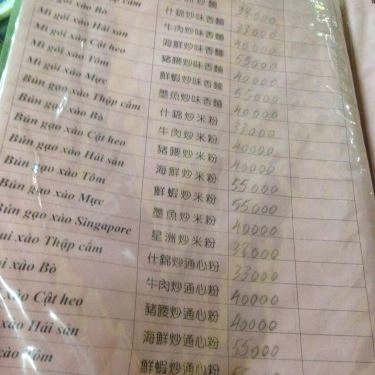 炒麵
Mì gói xào Bò 什錦炒味香麵 38000
Mì gói xào Hải sản 牛肉炒味香麵 33000
Mì gói xào Cật heo 海鮮炒味香麵 40000
Mì gói xào Tôm 豬腰炒味香麵 55000
Mì gói xào Mực 鮮蝦炒味香麵 40000
Bún gạo xào Thập cẩm 墨魚炒味香麵 55000
Bún gạo xào Bò 什錦炒米粉 40000
Bún gạo xào Cật heo 牛肉炒米粉 33000
Bún gạo xào Hải sản 豬腰炒米粉 40000
Bún gạo xào Tôm 海鮮炒米粉 40000
Bún gạo xào Mực 鮮蝦炒米粉 55000
Bún gạo xào Singapore 墨魚炒米粉 55000
ui xào Thập cẩm 星洲炒米粉 40000
ui xào Bò 什錦炒通心粉 38000
xào Cật heo 牛肉炒通心粉 33000
xào Hải sản 豬腰炒通心粉 40000
xào Tôm 海鮮炒通心粉 40000
鮮蝦炒通心粉 55000
55000